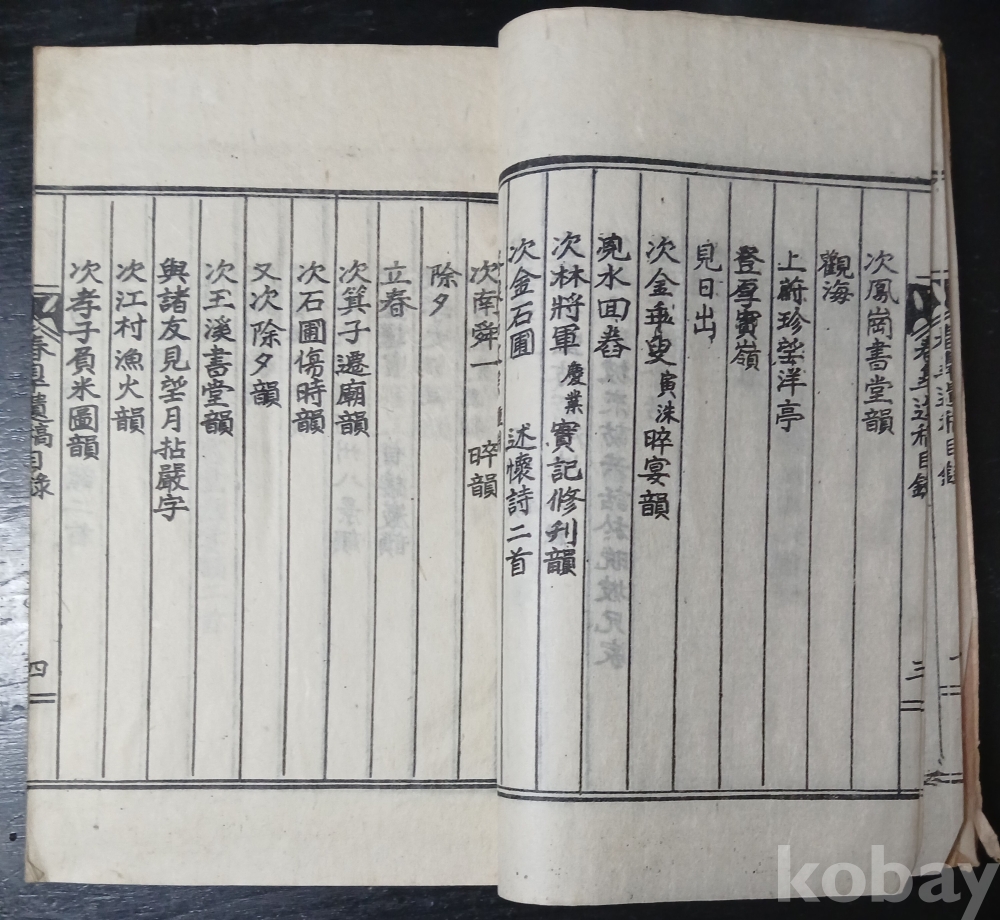 次鳳崗書堂韻
觀海
上蔚珍望洋亭
登孕寶嶺
見日出
次金 叟寅洙晬宴韻
水回巹
次林將軍慶業實記修刋韻
次金石圃 述懷詩二首
三
次南舜一 晬韻
除夕
立春
次箕子遷廟韻
次石圃傷時韻
又次除夕韻
次王溪書堂韻
與諸友見望月拈嚴字
次江村漁火韻
次孝子負米圖韻
春 遺稿目錄
四
kobay